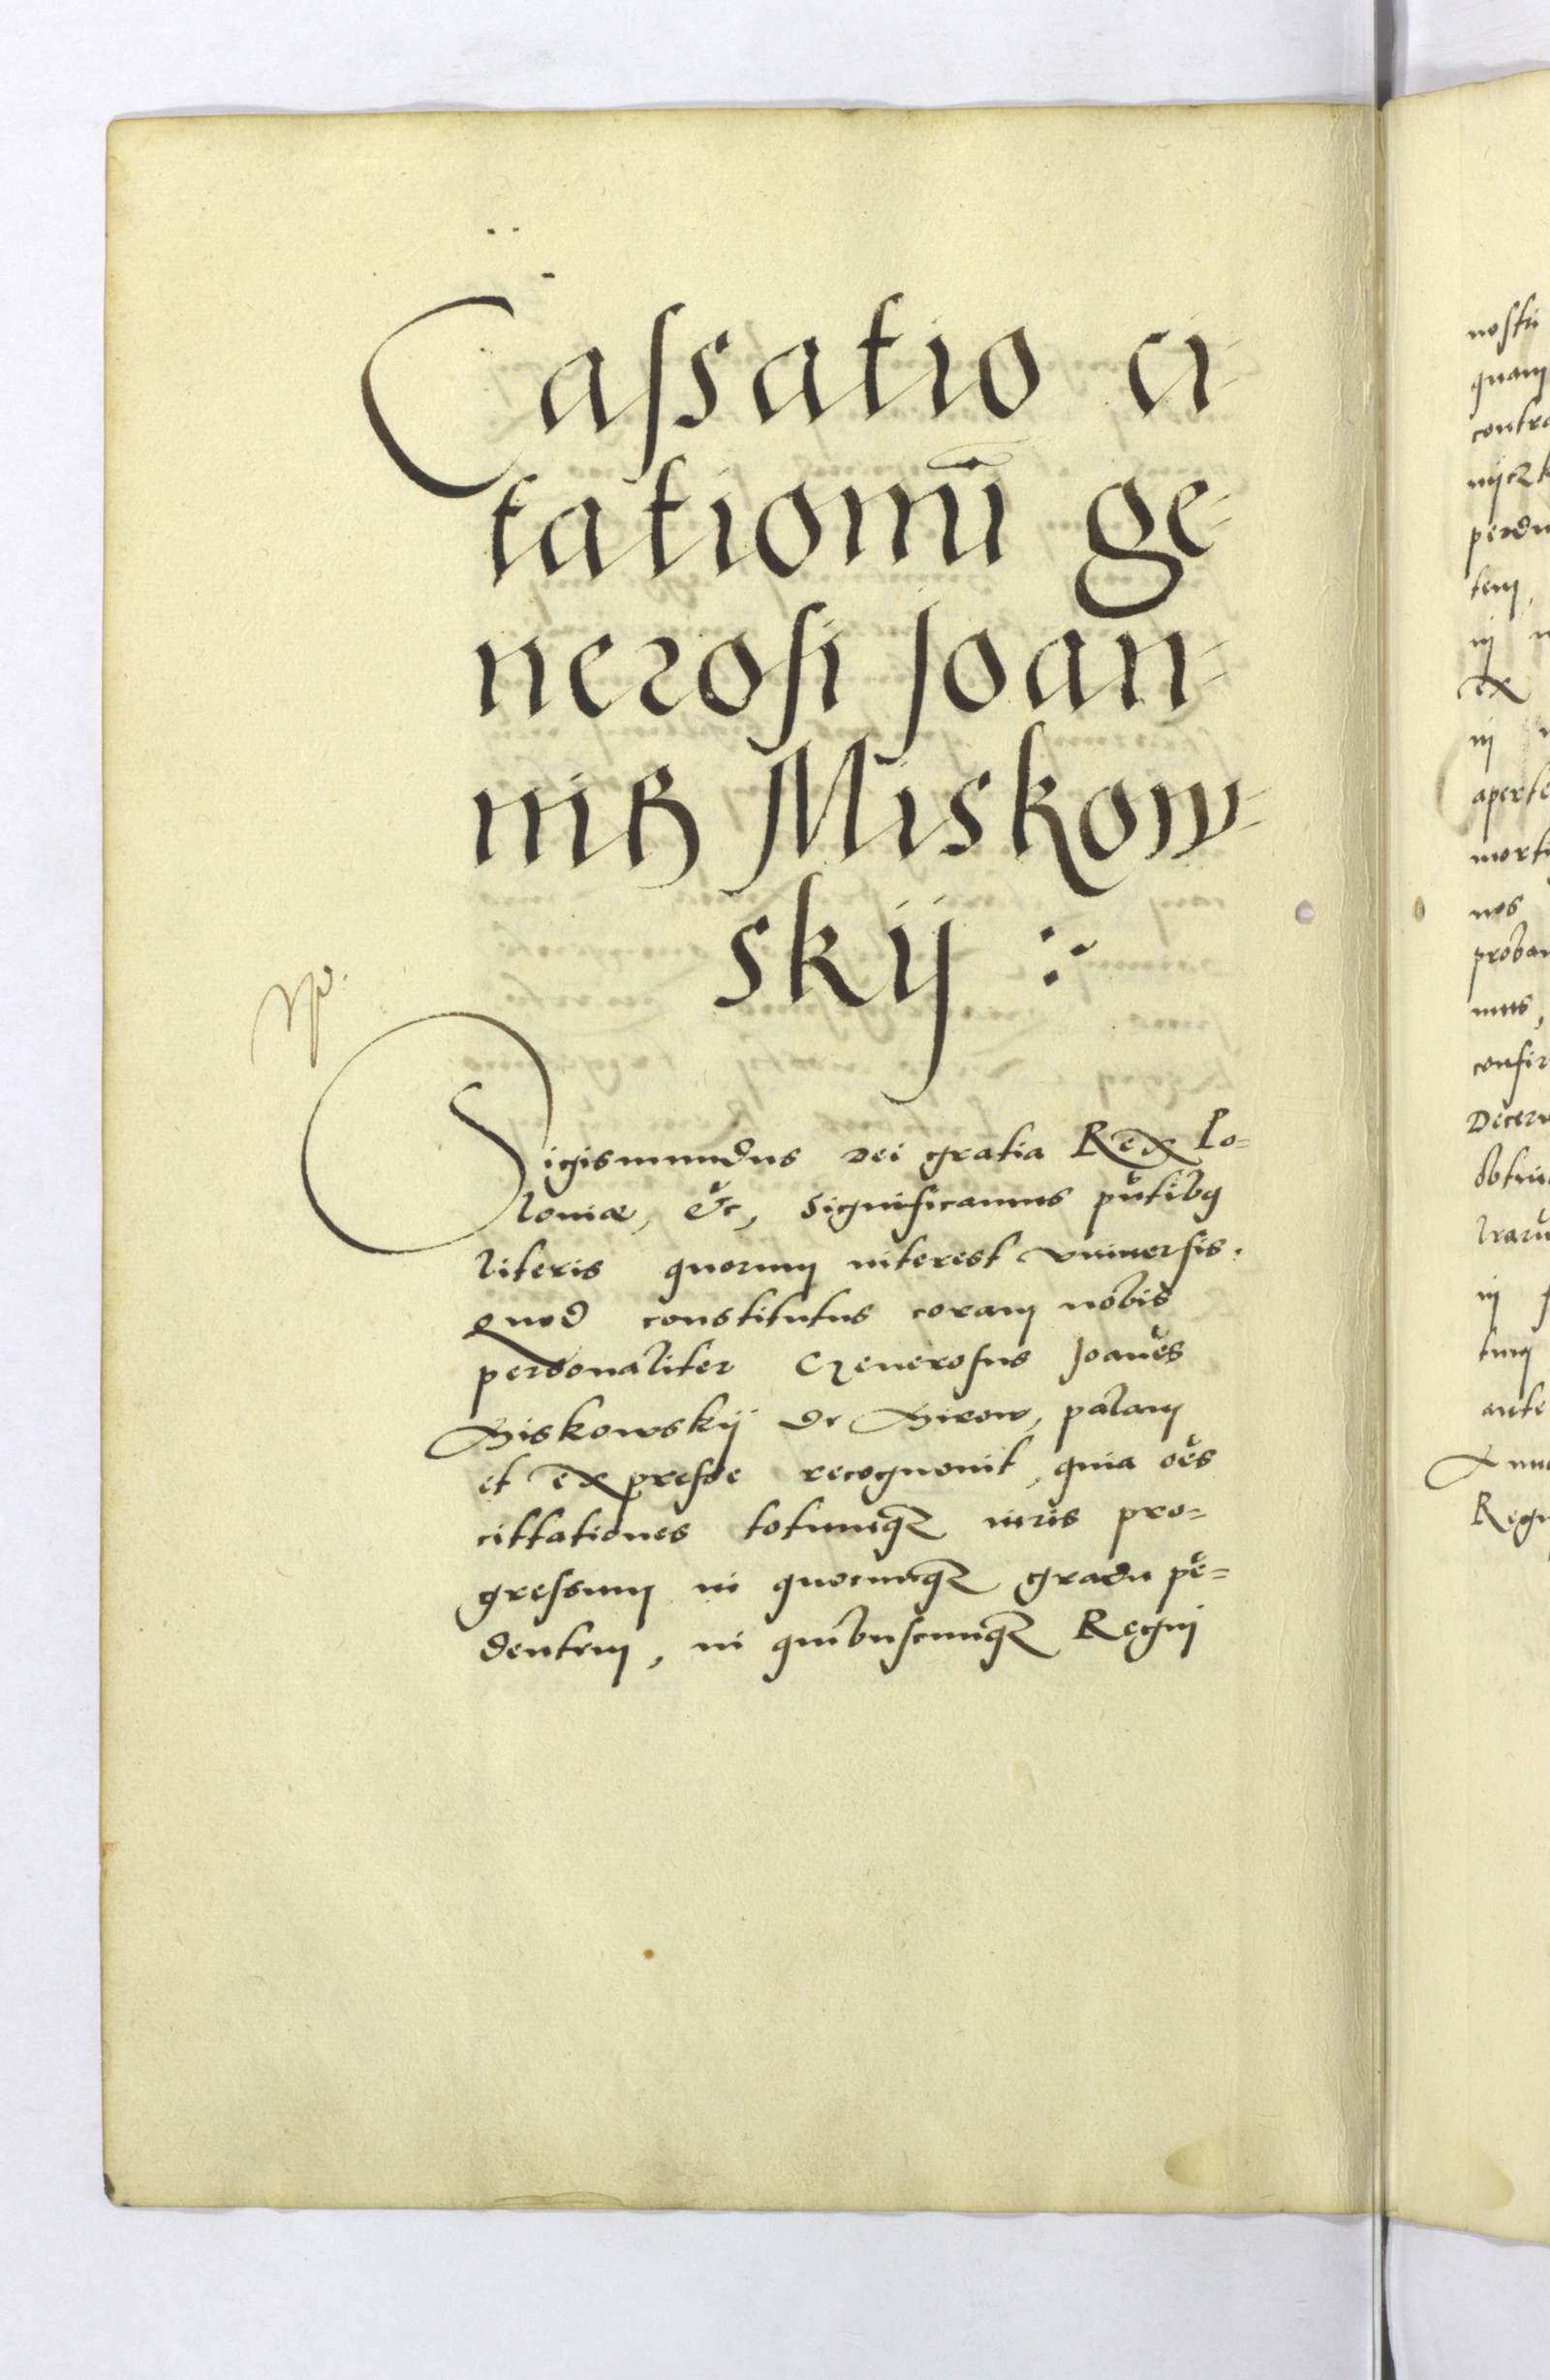 Cassatio ci-
tationũ ge-
nerosi Joan-
nis Miskow-
skij :~
Sigismundus Dei gratia Rex Po=
loniæ, &c, Significamus pñtibꝯ
literis quorum interest vniuersis.
Quod constitutus coram nobis
personaliter Generosus Joañes
Miskowskij de Mirow, palam
et expresse recognouit, quia oẽs
cittationes totumqꝫ iuris pro=
gressum in quocunqꝫ gradu pẽ=
dentem, in quibuscunqꝫ Regnj
nostri
quam
contra
perdu
tem,
in
ex
in
aperte
morti
nos
proban
mus,
confir
Decern
obtin
in
ante
Regn